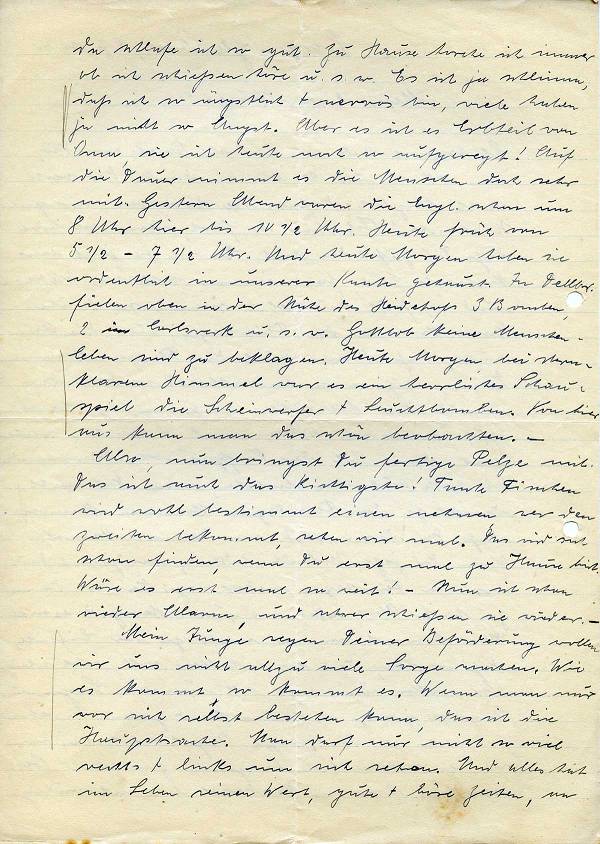 da schlafe ich so gut. Zu Hause horche ich immer
ob ich schiessen höre u. s. w. Es ist ja schlimm,
daß ich so ängstlich + nervös bin, viele haben
ja nicht so Angst. Aber es ist es Erbteil von
Oma, sie ist heute noch so aufgeregt! Auf
die Dauer nimmt es die Menschen doch sehr
mit. Gestern Abend waren die Engl. schon um
8 Uhr hier bis 10 1/2 Uhr. Heute früh von
5 1/2 – 7 1/2 Uhr. Und heute Morgen haben sie
ordentlich in unserer Kante gehaust. In Dellbr.
fielen oben in der Nähe des Heidehofs 3 Bomben,
2 im Carlswerk u. s. w. Gottlob keine Menschen-
leben sind zu beklagen. Heute Morgen bei stern-
klarem Himmel war es ein herrliches Schau-
spiel die Scheinwerfer + Leuchtbomben. Von hier
aus kann man das schön beobachten. –
Also, nun bringst Du fertige Pelze mit.
Das ist auch das Richtigste! Tante Finchen
wird wohl bestimmt einen nehmen wer den
zweiten bekommt, sehen wir mal. Das wird sich
schon finden, wenn Du erst mal zu Hause bist.
Wäre es erst mal so weit! – Nun ist schon
wieder Alarm, und schwer schiessen sie wieder. –
Mein Junge wegen Deiner Beförderung wollen
wir uns nicht allzu viele Sorge machen. Wie
es kommt, so kommt es. Wenn man nur
vor sich selbst bestehen kann, das ist die
Hauptsache. Man darf nur nicht so viel
rechts + links um sich sehen. Und alles hat
im Leben seinen Wert, gute + böse Zeiten, an